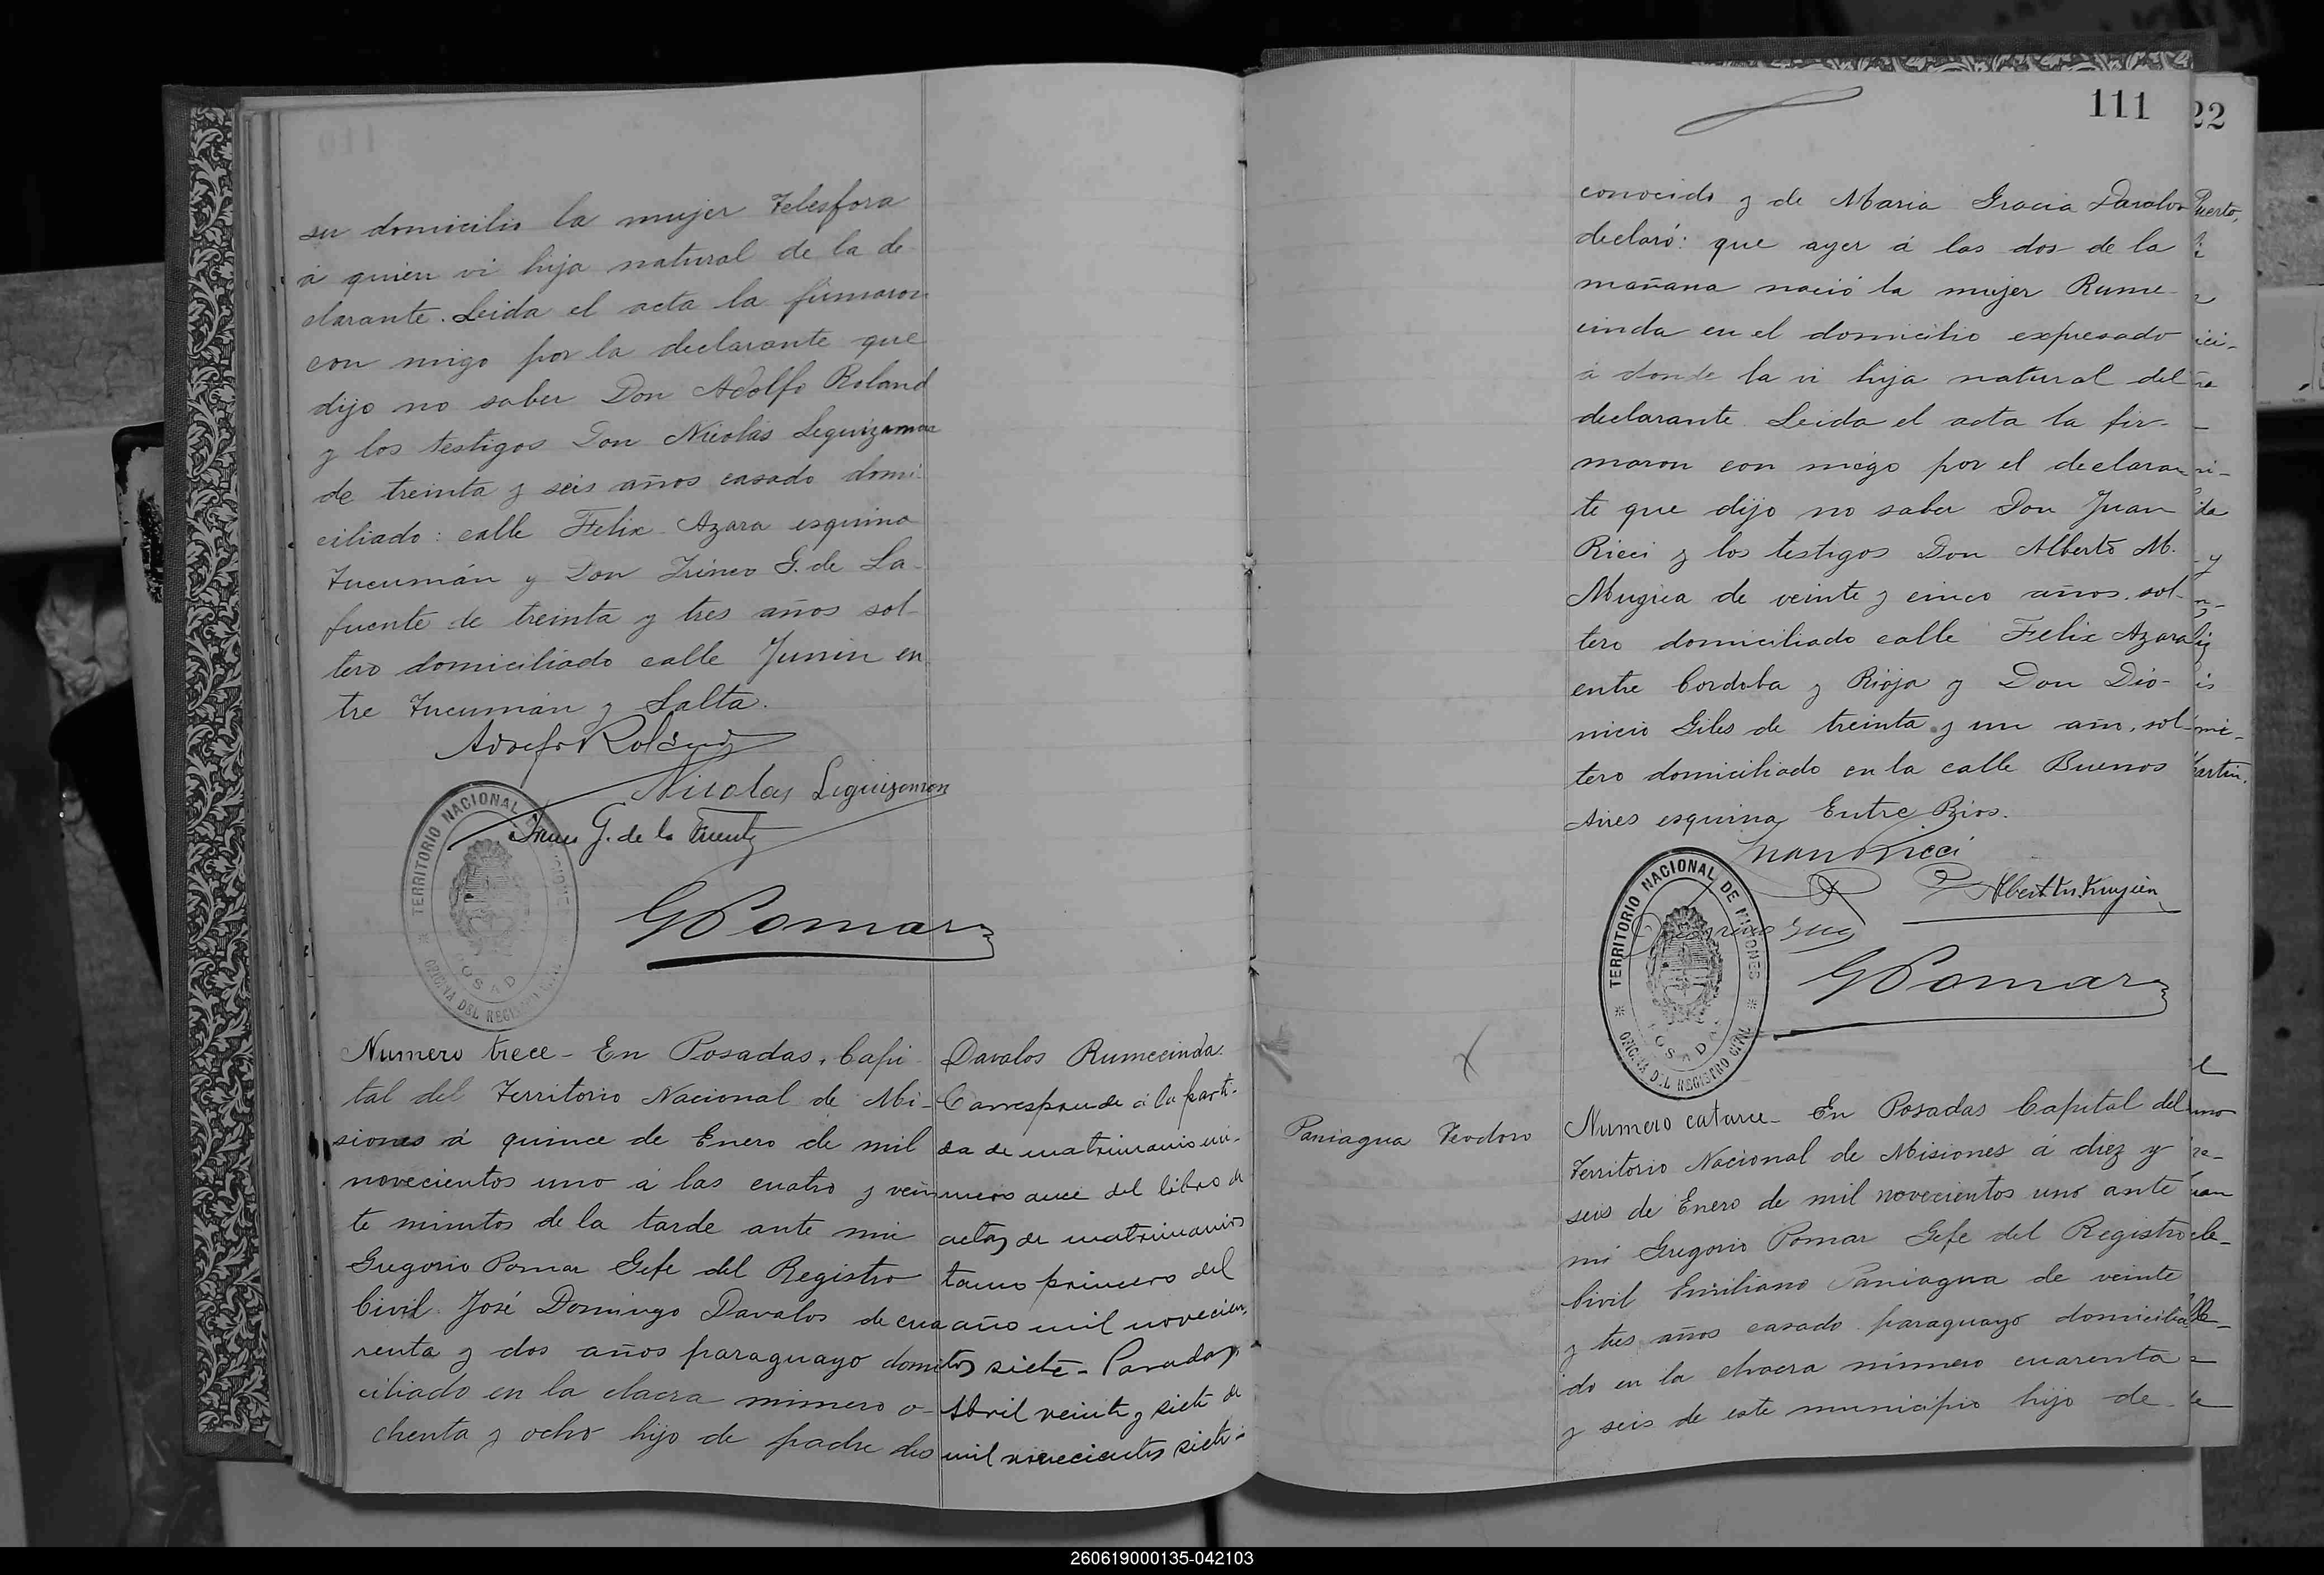 su domicilio la mujer Telesfora
á quien vi hija natural de la de
clarante. Leida el acta la firmaron
con migo por la declarante que
dijo no saber Don Adolfo Roland
y los testigos Don Nicolás Leguizamon
de treinta y seis años casado domi
ciliado: calle Felix Azara esquina
Tucumán y Don Irineo G. de La-
fuente de treinta y tres años sol-
tero domiciliado calle Junin en
tre Tucumán y Salta.
Adolfo Roland
Nicolas Leguizamon
G. de la Fuente
TERRITORIO NACIONAL
POSADAS
OFICINA DEL REGISTRO CIVIL
G Pomar
Numero trece - En Posadas, Capi
tal del Territorio Nacional de Mi-
siones á quince de Enero de mil
novecientos uno á las cuatro y vein
te minutos de la tarde ante mi
Gregorio Pomar Gefe del Registro
Civil José Domingo Davalos de cua
renta y dos años paraguayo domi
ciliado en la chacra número o-
chenta y ocho hijo de padre des
Davalos Rumecinda.
Corresponde á la parti-
da de matrimonio nú-
mero once del libro de
actas de matrimonios
tomo primero del
año mil novecien
tos siete - Posadas,
Abril veinte y siete de
mil novecientos siete -
111
conocido y de Maria Gracia Davalos
declaró: que ayer á las dos de la
mañana nació la mujer Rume-
cinda en el domicilio expresado
á donde la vi hija natural del
declarante. Leida el acta la fir-
maron con migo por el declaran
te que dijo no saber Don Juan
Ricci y los testigos Don Alberto M.
Mugica de veinte y cinco años sol-
tero domiciliado calle Felix Azara
entre Cordoba y Rioja y Don Dio-
nicio Giles de treinta y un año, sol-
tero domiciliado en la calle Buenos
Aires esquina Entre Rios.
Juan Ricci
TERRITORIO NACIONAL DE MISIONES
POSADAS
OFICINA DEL REGISTRO CIVIL
G Pomar
Paniagua Teodoro
Numero catorce - En Posadas Capital del
Territorio Nacional de Misiones á diez y
seis de Enero de mil novecientos uno ante
mi Gregorio Pomar Gefe del Registro
Civil Emiliano Paniagua de veinte
y tres años casado paraguayo domicilia
do en la chacra número cuarenta
y seis de este municipio hijo de
22
Puerto,
260619000135-042103